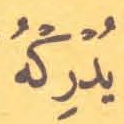 يُدْرِكْهُ